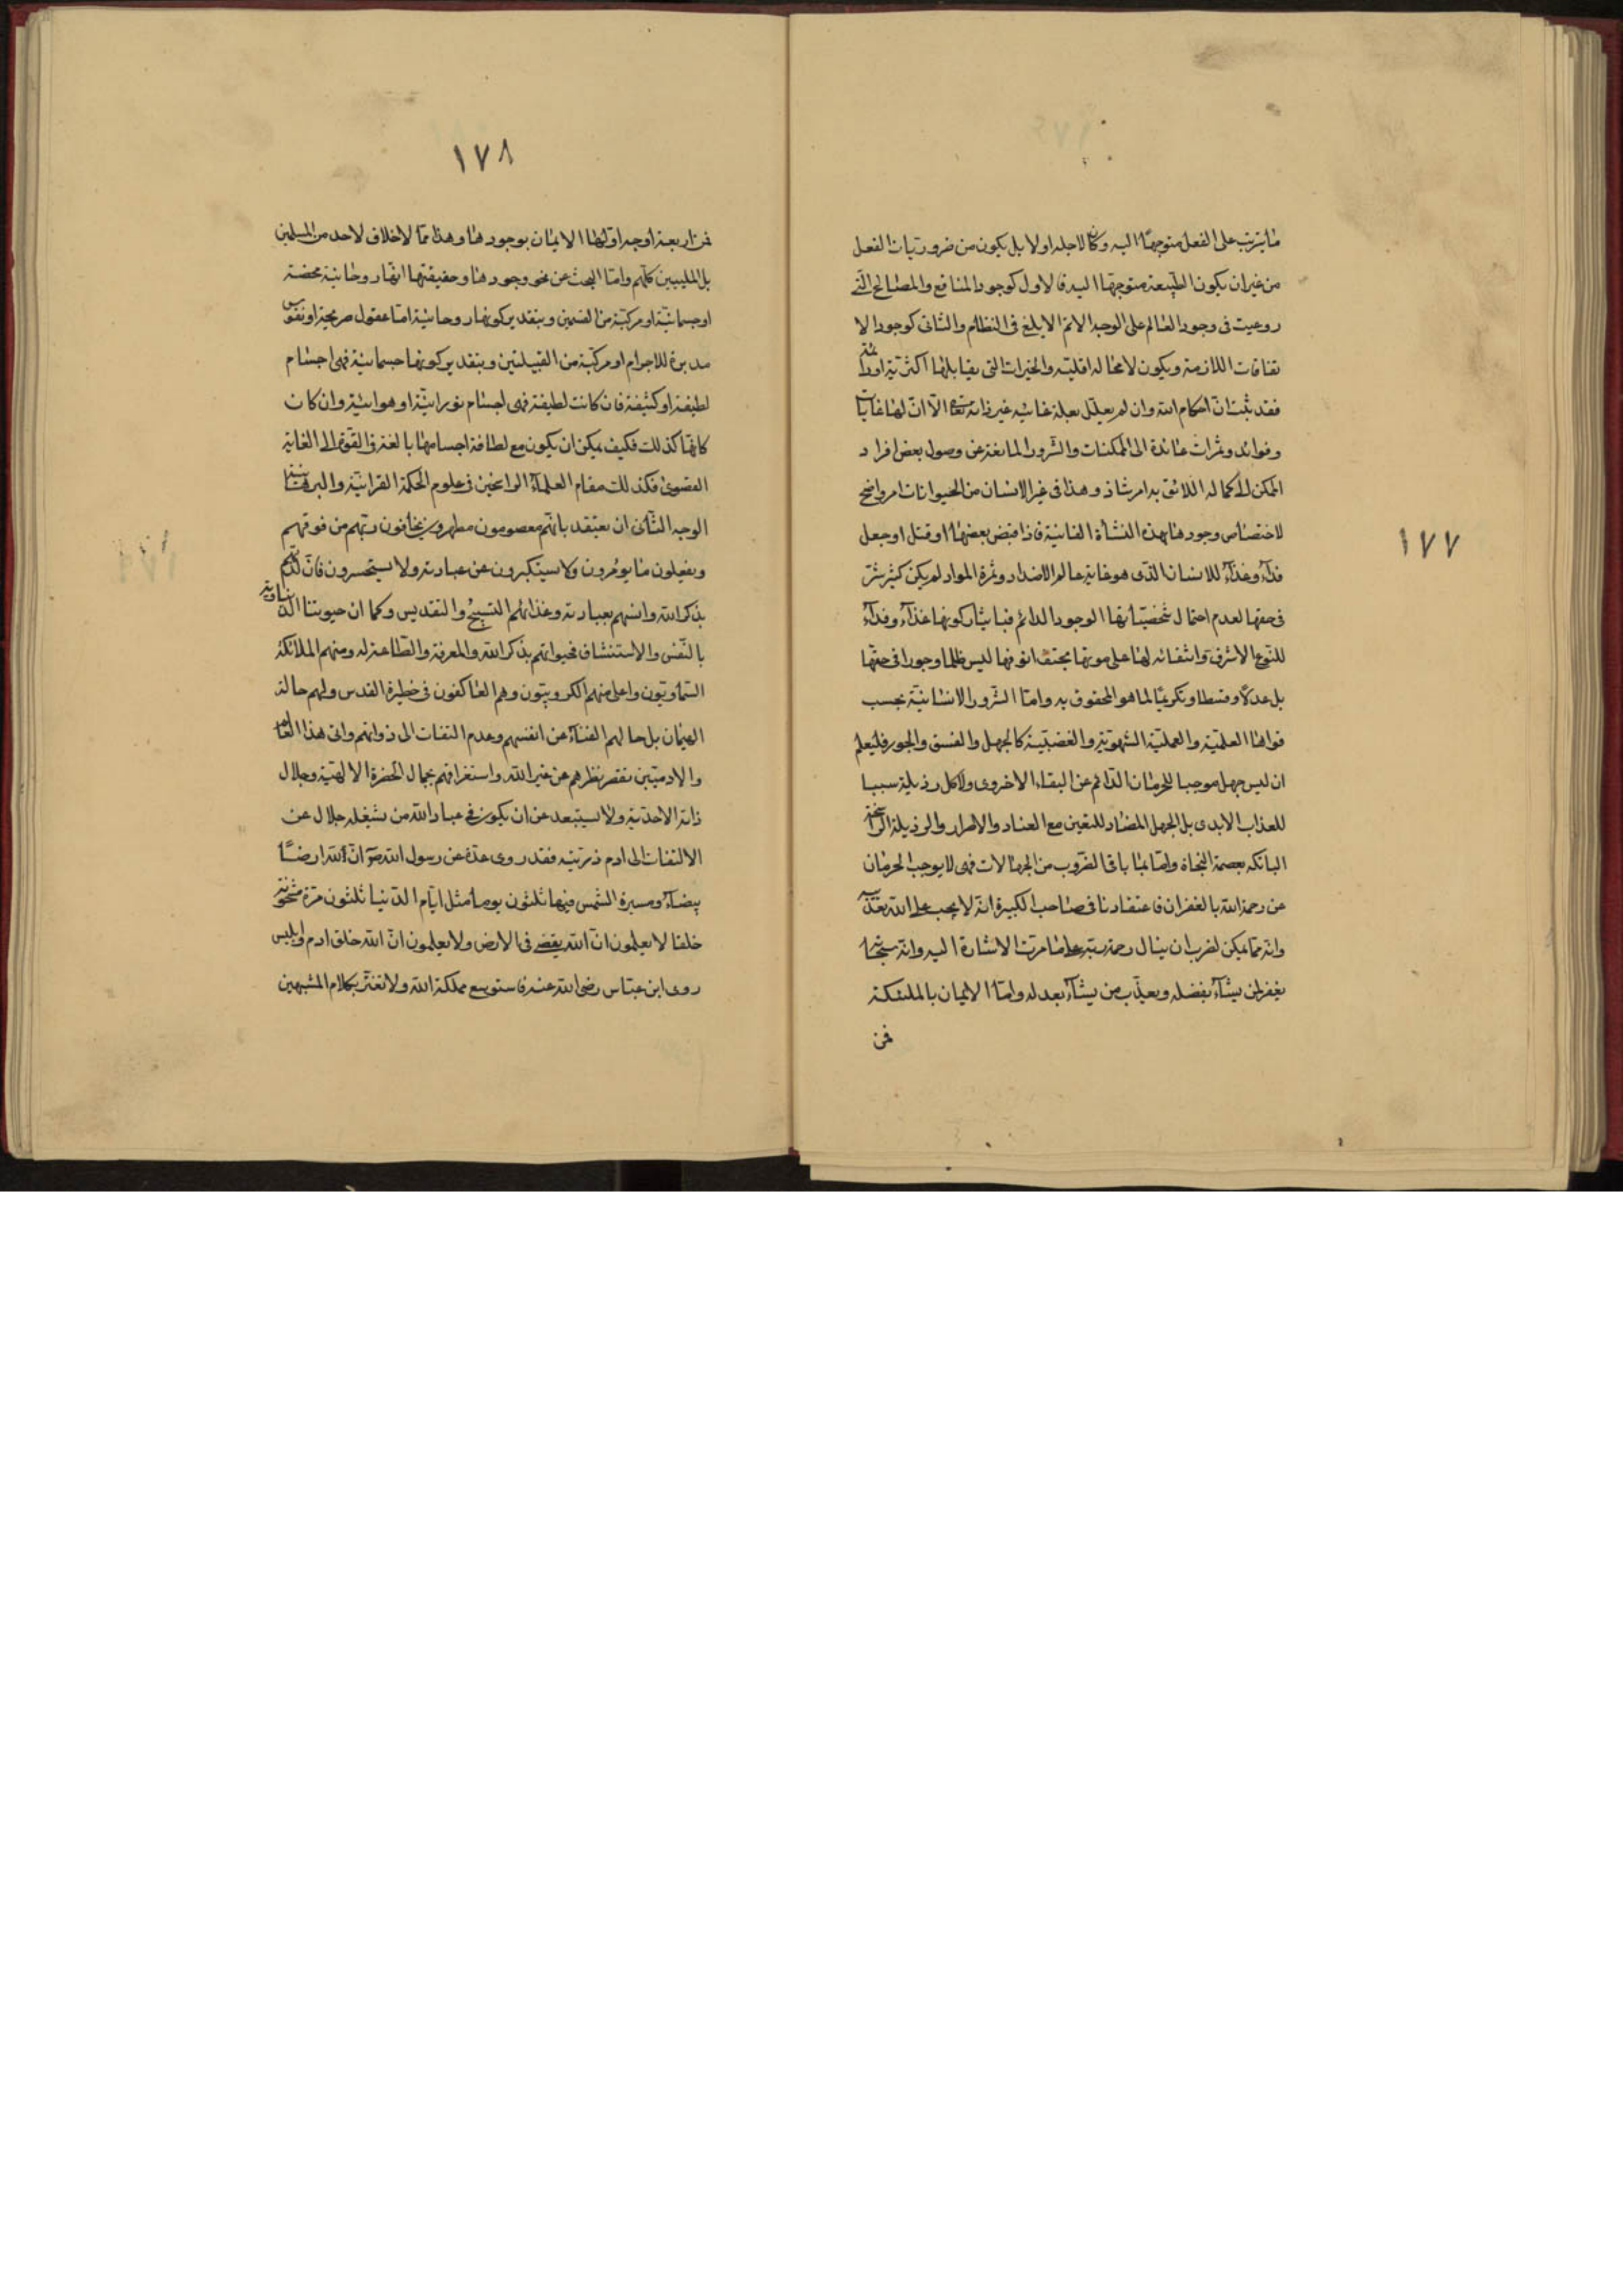 ١٧٧
ما يترتب على الفعل متوجها اليه وكان لاجله اولا بل يكون من ضروريات الفعل
من غير ان يكون الطبيعة متوجها اليه فالاول كوجود المنافع والمصالح التى
روعيت فى وجود العالم على الوجه الاتم الابلغ فى النظام والثانى كوجود الا
تفاقات اللازمة ويكون لا محالة اقلية والخيرات التى يقابلها اكثرية او دائمة
فقد ثبت ان احكام الله وان لم يعلل بعلة غائيه غير ذاته تعالى الا ان لها غايات
وفوائد وثمرات عائدة الى الممكنات والشرور المانعة عن وصول بعض افراد
الممكن الى كماله اللائق به امر شاذ وهذا فى غير الانسان من الحيوانات امر واضح
لاختصاص وجودها بهذه النشأة الفانية فاذا قبض بعضها او قتل او جعل
فداء وغذاء للانسان الذى هو غاية عالم الاضداد وثمرة المواد لم يكن كثير شر
فى حقها لعدم احتمال شخصياتها الوجود الدائم فبايثار كونها غذاء وفداء
للنوع الاشرف واشفائه لها على موتها بحتف انوفها ليس ظلما وجورا فى حقها
بل عدلا وقسطا وتكريما لما هو المحقوق به واما الشرور الانسانية بحسب
قواها العلمية والعملية الشهوية والغضبية كالجهل والفسق والجور فليعلم
ان ليس جهل موجبا للحرمان الدائم عن البقاء الاخروى ولا كل رذيلة سببا
للعذاب الابدى بل الجهل المضاد لليقين مع العناد والاصرار والرذيلة الراسخة
البانكه بعصمة النجاة واما باقى الضروب من الجهالات فهى لا يوجب الحرمان
من رحمة الله بالغفران فاعتقادنا فى صاحب الكبيرة انه لا يجب على الله تعذيبه
وانه مما يمكن لضرب ان ينال رحمة ربه على ما مرت الاشارة اليه وانه سبحانه
يغفر لمن يشآء بفضله ويعذب من يشآء بعدله واما الايمان بالملئكة
فمن
١٧٨
فمن اربعة اوجه اولها الايمان بوجودها وهذا مما لا خلاف لاحد من المسلمين
بل المليين كلهم واما البحث عن نحو وجودها وحقيقتها انها روحانية محضة
او جسمانية او مركبة من القسمين وبتقدير كونها روحانية اما عقول صريحة او نفوس
مدبرة للاجرام او مركبة من القبيلتين وبتقدير كونها جسمانية فهى اجسام
لطيفة او كثيفة فان كانت لطيفة فهى اجسام نورانية او هوائية وان كان
كانها كذلك فكيف يمكن ان يكون مع لطافة اجسامها بالغة فى القوة الى الغاية
القصوى فكذلك مقام العلمآء الراسخين فى علوم الحكمة القرانية والبرهانية
الوجه الثانى ان يعتقد بانهم معصومون مطهرون يخافون ربهم من فوقهم
ويفعلون ما يومرون ولا يستكبرون عن عبادته ولا يستحسرون فان لذتهم
بذكر الله وانسهم بعبادته وغذائهم التسبيح والتقديس وكما ان حيوتنا الدنياوية
بالنفس والاستنشاق فحيوتهم بذكر الله والمعرفة والطاعة له ومنهم الملائكة
السماويون واعلى منهم الكروبيون وهم العاكفون فى حظيرة القدس ولهم حالة
الهيمان بل حالهم الفناء عن انفسهم وعدم التفات الى ذواتهم والى هذا العالم
والادميين بقصر نظرهم عن غير الله واستغراقهم بجمال الحضرة الالهية وجلال
ذاته الاحدية ولا يستبعد عن ان يكون فى عباد الله من يشغله جلال عن
الالتفات الى ادم ذريته فقد روى عدة عن رسول الله ص ان لله ارضًا
بيضآء ومسيرة الشمس فيها ثلثون يوما مثل ايام الدنيا ثلثون مرة مشحونة
خلقا لا يعلمون ان الله يعصى فى الارض ولا يعلمون ان الله خلق ادم وابليس
روى ابن عباس رضى الله عنه فاستوسع مملكة الله ولا تغتر بكلام المشبهين